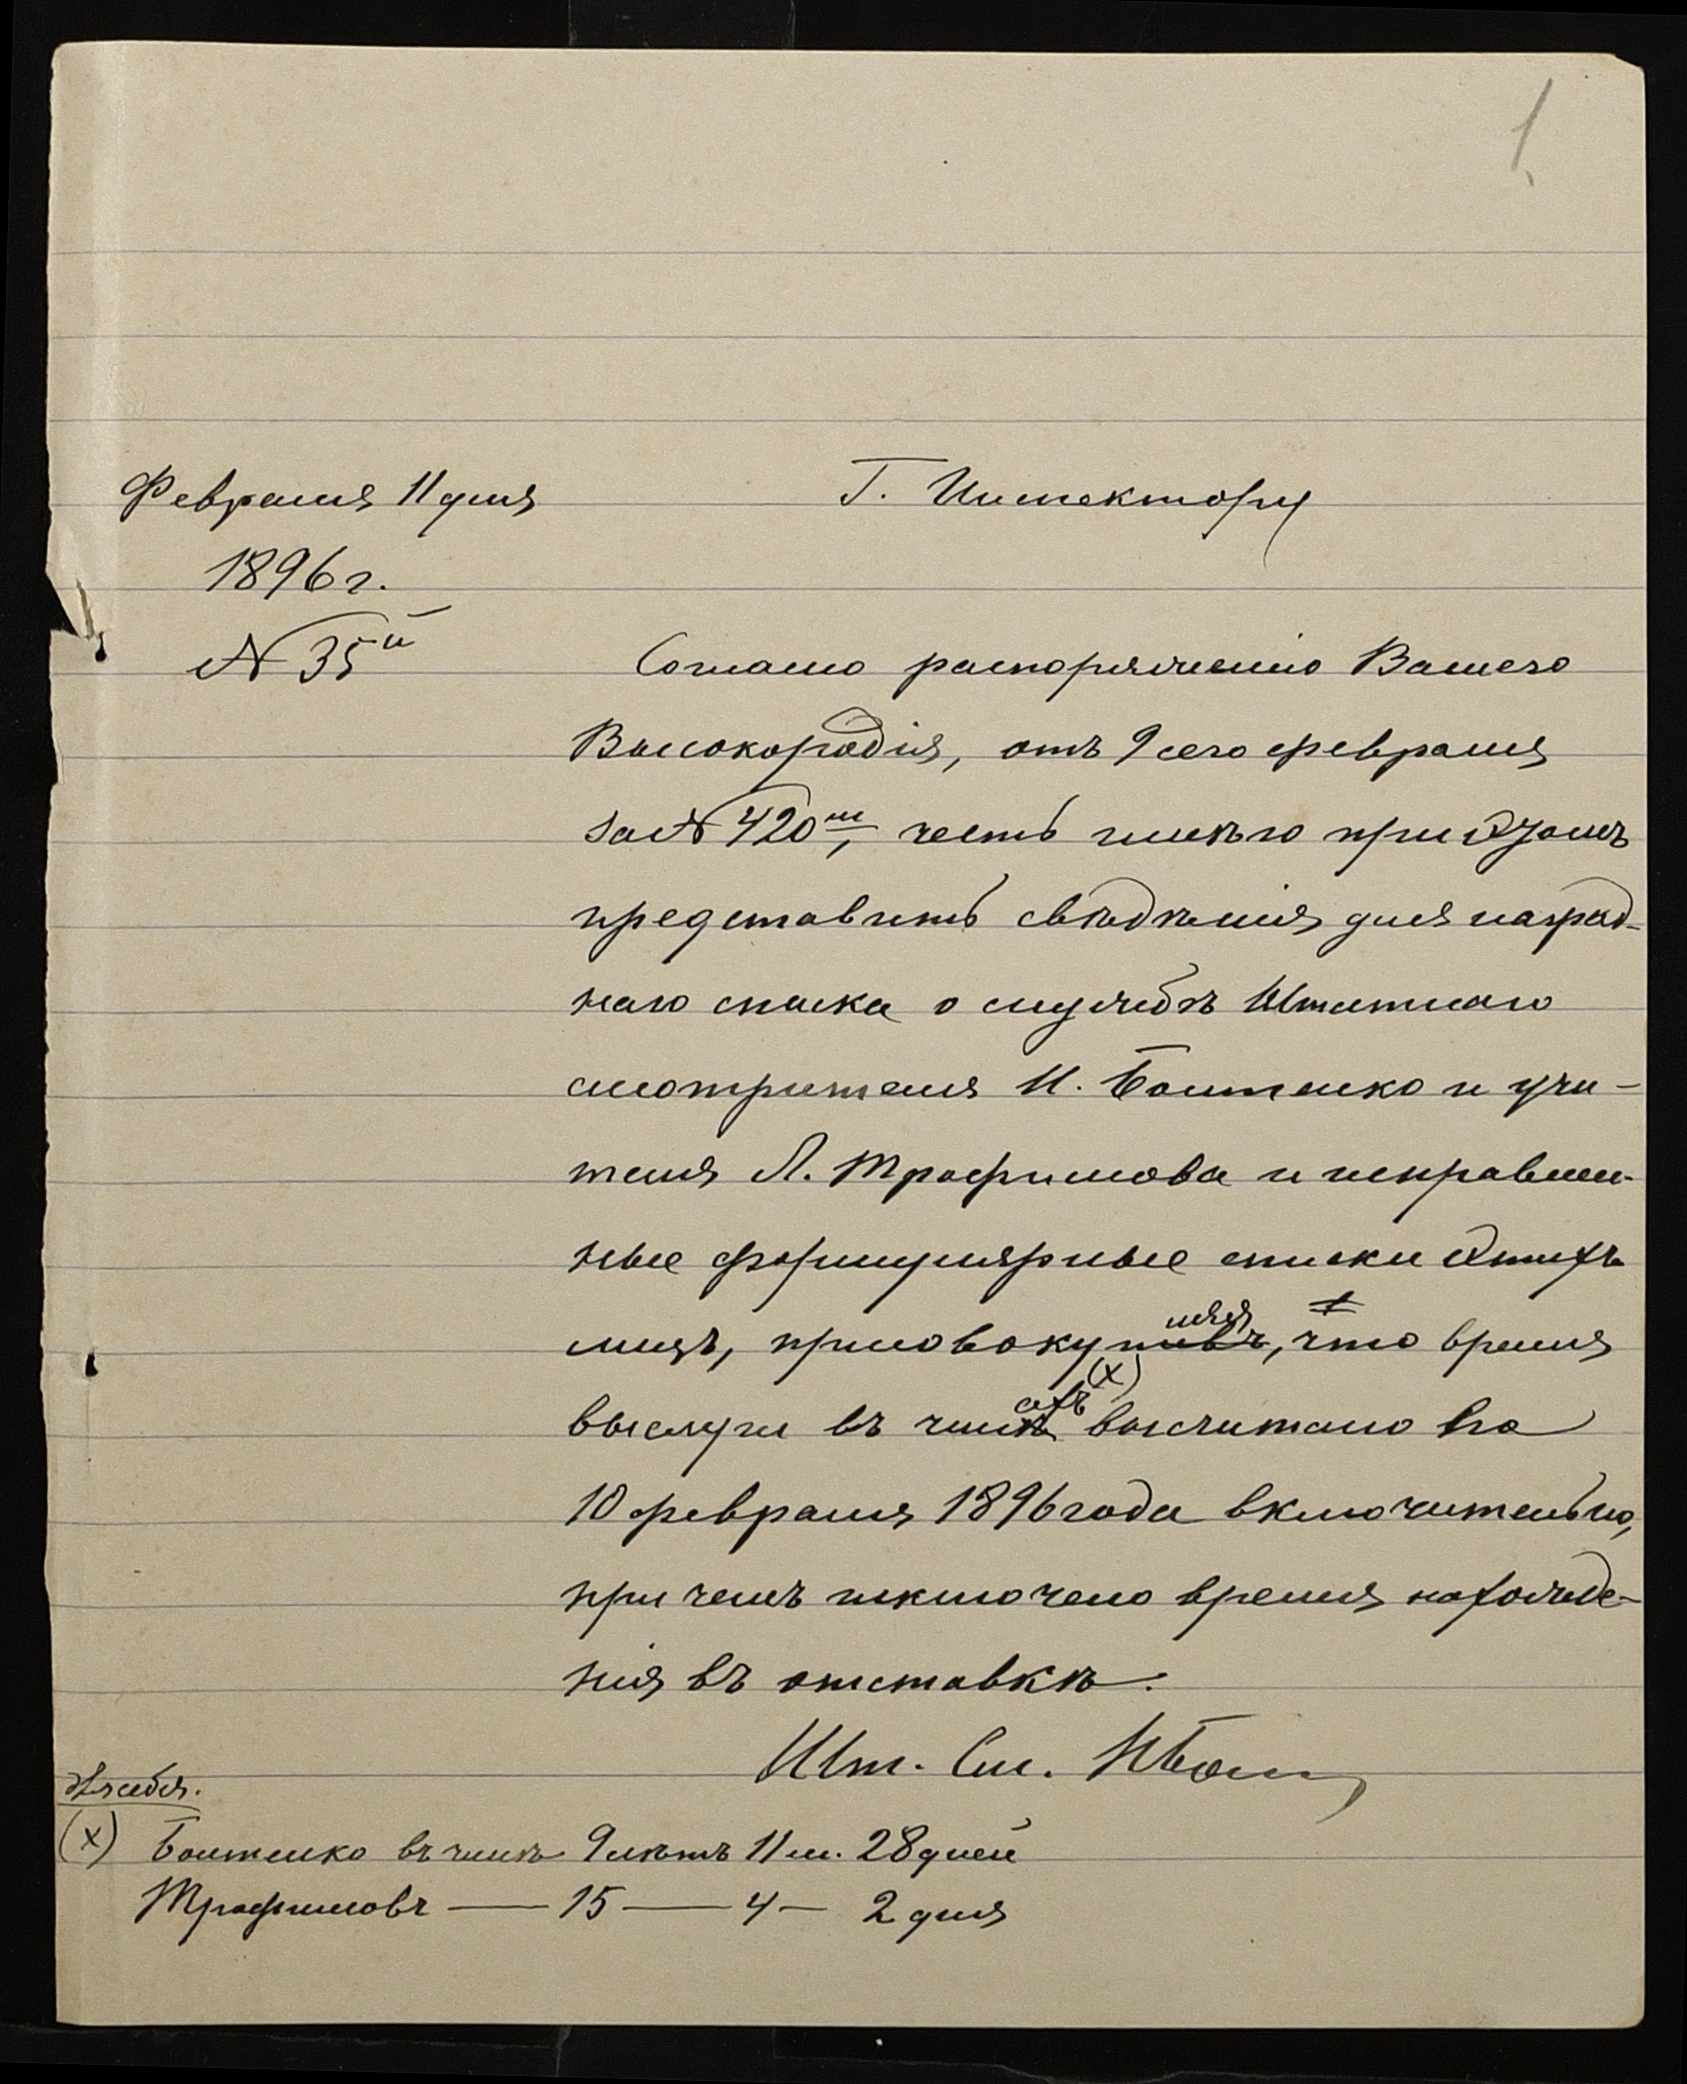 1
Февраля 11 дня
1896 г.
№ 35й
Г. Инспектору
Согласно распоряженію Вашего
Высокородія, отъ 9 сего февраля
за № 420м, честь имѣю при этомъ
представить свѣдѣнія для наград-
наго списка о службѣ Штатнаго
смотрителя И. Болтенко и учи-
теля Л. Трофимова и исправлен-
ные формулярные списки этихъ
лицъ, присовокупивъ, что время
выслуги въ чинахъ (х) высчитано по
10 февраля 1896 года включительно,
при чемъ исключено время нахожде-
нія въ отставкѣ.
Шт. См. И Бол
(х) Болтенко въ чинѣ 9 лѣтъ 11 м. 28 дней
Трофимовъ — 15 — 4 — 2 дня